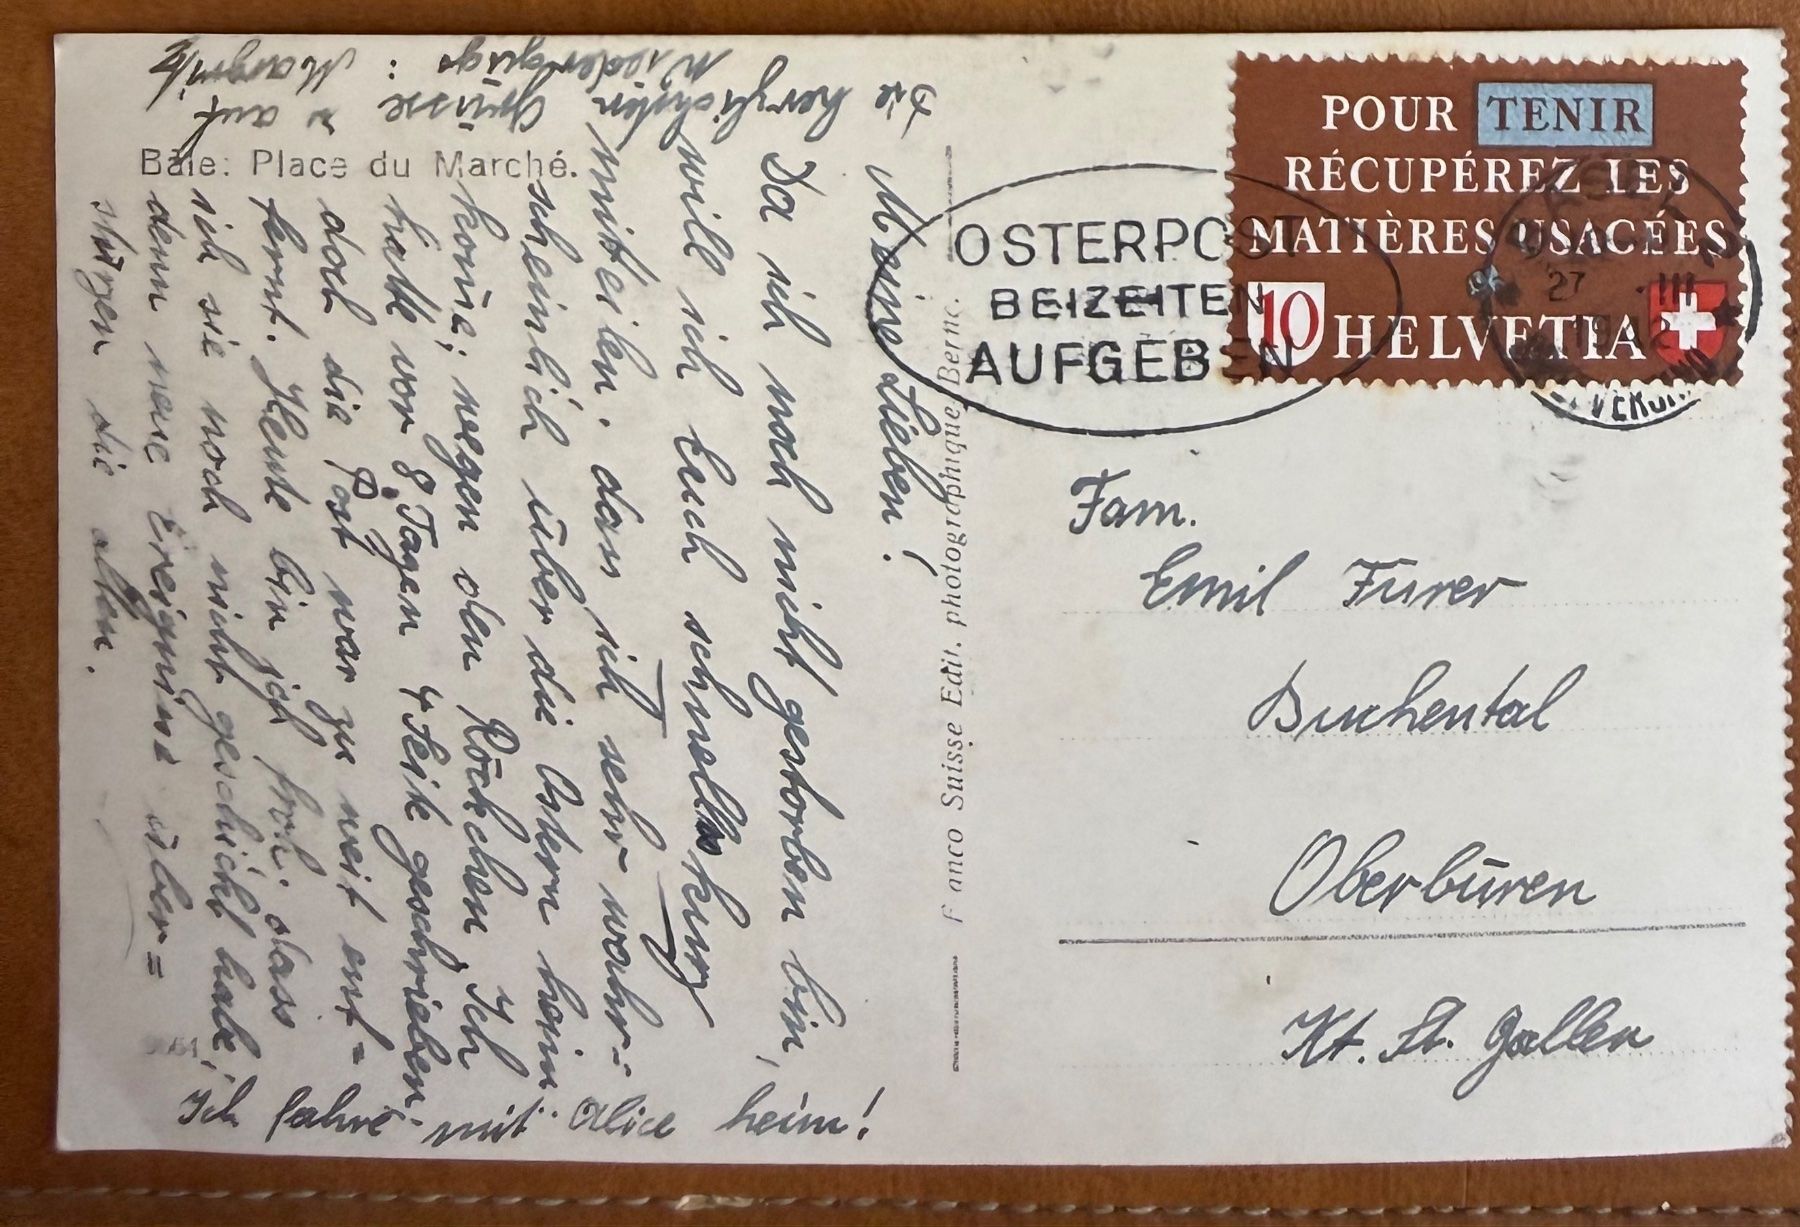 Bâle: Place du Marché.
Meine Lieben!
Da ich noch nicht gestorben bin,
will ich Euch schnell kurz
mitteilen. dass ich sehr wahr=
scheinlich über die Ostern heim
kome; wegen den Röckchen. Ich
hatte vor 8 Tagen 4 Seit geschrieben.
doch die Post war zu weit ent=
fernt. Heute bin ich froh. dass
ich sie noch nicht geschickt habe,
denn neue Ereignisse über=
stürzen die alten.
Ich fahre mit Alice heim!
Die herzlichsten Grüsse auf
Wiederseh :
Margrith
Franco Suisse Edit. photographique Berne.
OSTERPOST
BEIZEITEN
AUFGEBEN
POUR TENIR
RÉCUPÉREZ LES
MATIÈRES USAGÉES
10 HELVETIA
27 III
Fam.
Emil Furer
Buchental
Oberbüren
Kt. St. Gallen